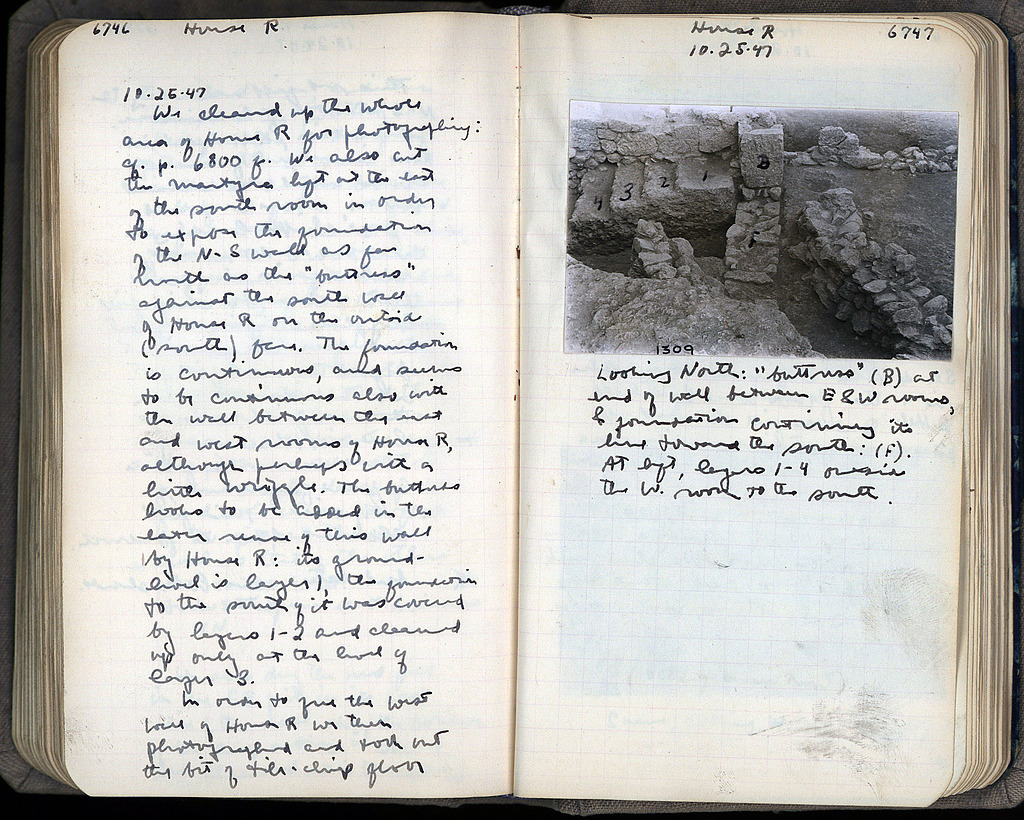 6746 House R
10.25.47
We cleaned up the whole
area of House R for photographing:
cf. p. 6800 f. We also cut
the martyra left at the east
of the south room in order
to expose the foundation
of the N-S wall as far
north as the "buttress"
against the south wall
of House R on the outside
(south) face. The foundation
is continuous, and seems
to be continuous also with
the wall between the east
and west rooms of House R,
although perhaps with a
little wriggle. The buttress
looks to be added in the
later reuse of this wall
by House R: its ground-
level is layer 1, the foundation
to the south of it was covered
by layers 1-2 and cleaned
up only at the level of
layer 3.
In order to free the west
wall of House R we then
photographed and took out
the bit of tile-chip floor
House R 6747
10.25.47
B
1
2
3
4
F
1309
Looking North: "buttress" (B) at
end of wall between E & W rooms,
& foundation continuing its
line toward the south: (F).
At left, layers 1-4 outside
the W. room to the south.